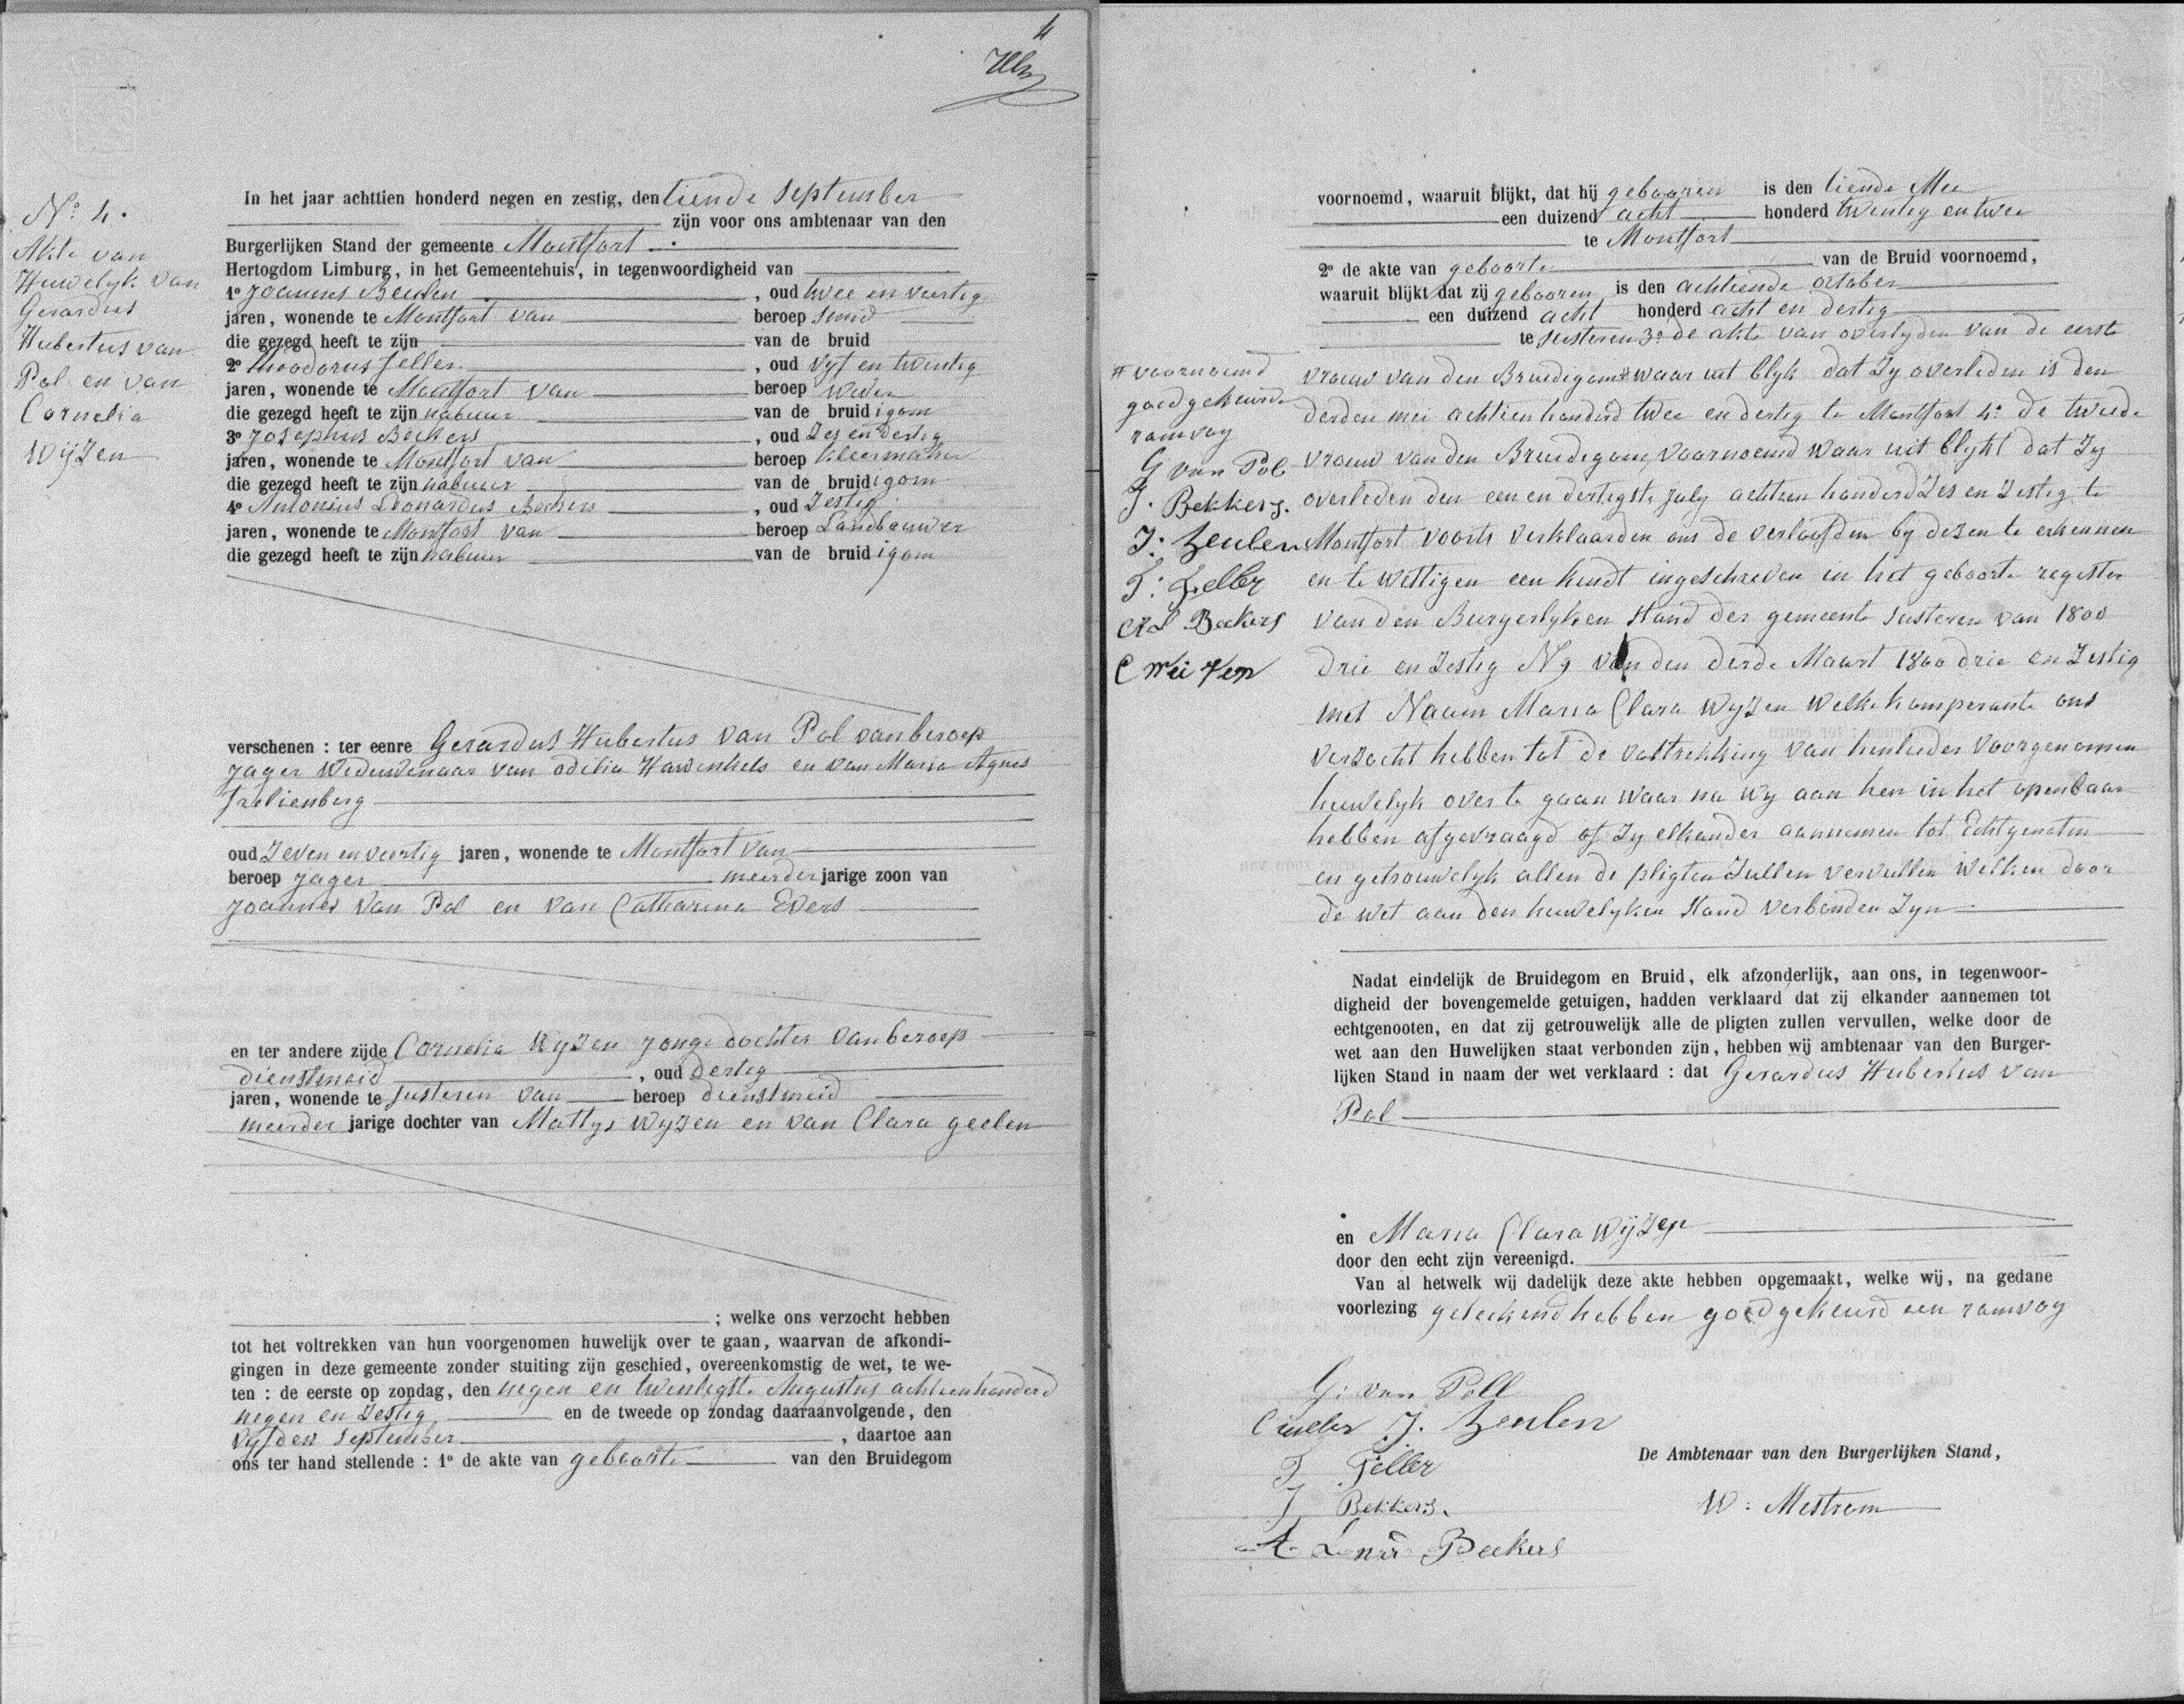 4
No 4.
Akte van
Huwelyk van
Gerardus
Hubertus van
Pol en van
Cornelia
Wijzen
In het jaar achttien honderd negen en zestig, den tiende September
zijn voor ons ambtenaar van den
Burgerlijken Stand der gemeente Montfort
Hertogdom Limburg, in het Gemeentehuis, in tegenwoordigheid van
1o Joannes Beulen, oud twee en veertig
jaren, wonende te Montfort van beroep smid
die gezegd heeft te zijn van de bruid
2o Theodorus Feller, oud vyf en twentig
jaren, wonende te Montfort van beroep wever
die gezegd heeft te zijn nabuur van de bruidigom
3o Josephus Beckers, oud Zes en dertig
jaren, wonende te Montfort van beroep kleermaker
die gezegd heeft te zijn nabuur van de bruidigom
4o Antonius Leonardus Beckers, oud Zestig
jaren, wonende te Montfort van beroep Landbouwer
die gezegd heeft te zijn nabuur van de bruidigom
verschenen : ter eenre Gerardus Hubertus van Pol van beroep
jager Weduwenaar van Odilia Hawinkels en van Maria Agnes
oud Zeven en veertig jaren, wonende te Montfort van
beroep jager meerder jarige zoon van
Joannes van Pol en van Catharina Evers
en ter andere zijde Cornelia Wyzen jonge dochter van beroep
dienstmeid, oud dertig
jaren, wonende te Susteren van beroep dienstmeid
meerder jarige dochter van Mattys Wyzen en van Clara geelen
; welke ons verzocht hebben
tot het voltrekken van hun voorgenomen huwelijk over te gaan, waarvan de afkondi-
gingen in deze gemeente zonder stuiting zijn geschied, overeenkomstig de wet, te we-
ten : de eerste op zondag, den negen en twentigste Augustus achtienhonderd
negen en Zestig en de tweede op zondag daaraanvolgende, den
vyfden September, daartoe aan
ons ter hand stellende : 1o de akte van geboorte van den Bruidegom
voornoemd, waaruit blijkt, dat hij gebooren is den tiende Mei
een duizend acht honderd twentig en twee
te Montfort
2o de akte van geboorte van de Bruid voornoemd,
waaruit blijkt dat zij gebooren is den achtiende october
een duizend acht honderd acht en dertig
te Susteren 3o de akte van overlyden van de eerste
vrouw van den Bruidigom # waar uit blyk dat Zy overleden is den
derden mei achtien honderd twee en dertig te Montfort 4o de tweede
vrouw van den Bruidegom voornoemd waar uit blykt dat Zy
overleden den een en dertigste July achtien honderd Zes en Zestig te
Montfort voorts verklaarden ons de verloofden by dezen te erkennen
en te wettigen een kindt ingeschreven in het geboorte register
van den Burgerlyken Stand der gemeente Susteren van 1800
drie en Zestig N 9 van den derde Maart 1800 drie en Zestig
met Naam Maria Clara Wyzen welke komparante ons
verzocht hebben tot de voltrekking van henlieder voorgenomen
huwelyk over te gaan waar na wy aan hen in het openbaar
hebben afgevraagd of Zy elkander aannemen tot Echtgenoten
en getrouwelyk allen de pligten Zullen vervullen welken door
de wet aan den huwelyken Stand verbonden Zyn
# voornoemd
goedgekeurde
ramvoy
G van Pol
J. Bekkers.
J: Beulen
T: Feller
A L Beckers
C Weizen
Nadat eindelijk de Bruidegom en Bruid, elk afzonderlijk, aan ons, in tegenwoor-
digheid der bovengemelde getuigen, hadden verklaard dat zij elkander aannemen tot
echtgenooten, en dat zij getrouwelijk alle de pligten zullen vervullen, welke door de
wet aan den Huwelijken staat verbonden zijn, hebben wij ambtenaar van den Burger-
lijken Stand in naam der wet verklaard : dat Gerardus Hubertus van
Pol
en Maria Clara Wijzen
door den echt zijn vereenigd.
Van al hetwelk wij dadelijk deze akte hebben opgemaakt, welke wij, na gedane
voorlezing geteekend hebben goedgekeurd een ramvoy
G: van Poll
J. Beulen
T Feller
J Bekkers.
A Beckers
De Ambtenaar van den Burgerlijken Stand,
W: Mestrom